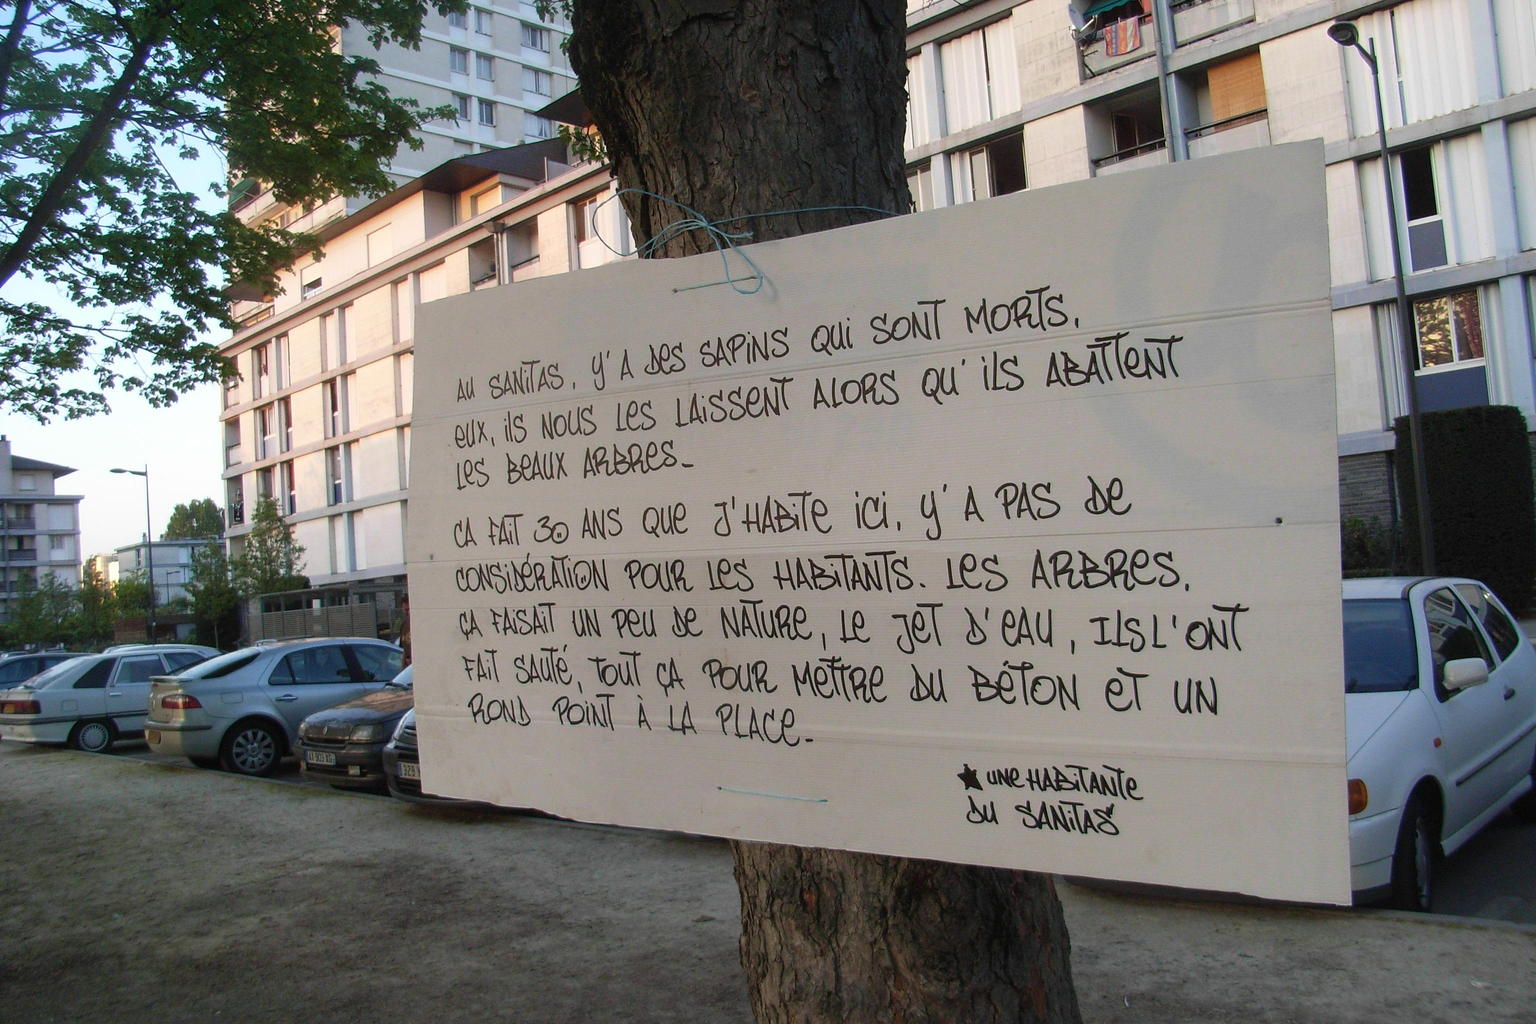 AU SANITAS, Y'A DES SAPINS QUI SONT MORTS,
EUX, ILS NOUS LES LAISSENT ALORS QU'ILS ABATTENT
LES BEAUX ARBRES_
ÇA FAIT 30 ANS QUE J'HABITE ICI, Y'A PAS DE
CONSIDÉRATION POUR LES HABITANTS. LES ARBRES,
ÇA FAISAIT UN PEU DE NATURE, LE JET D'EAU, ILS L'ONT
FAIT SAUTÉ, TOUT ÇA POUR METTRE DU BÉTON ET UN
ROND POINT À LA PLACE_
★ UNE HABITANTE
DU SANITAS